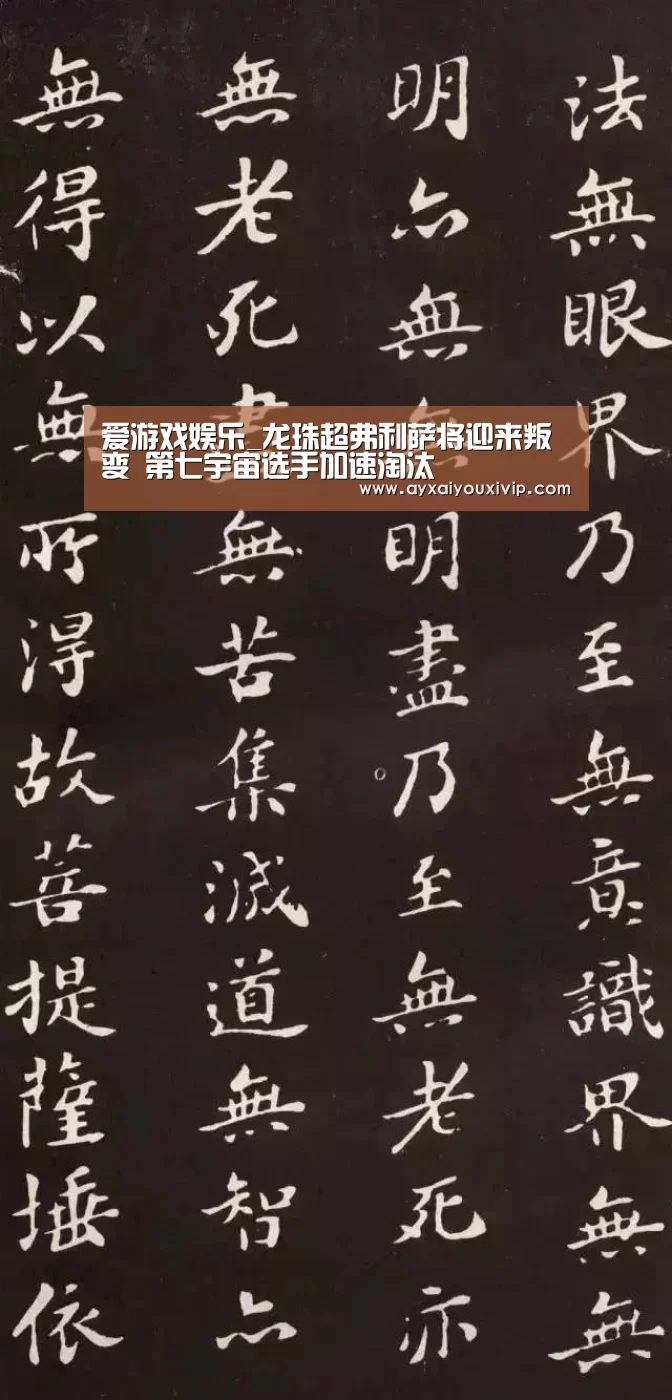 法無眼界乃至無意識界無無
明亦無無明盡乃至無老死亦
無老死盡無苦集滅道無智亦
無得以無所得故菩提薩埵依
爱游戏娱乐_龙珠超弗利萨将迎来叛
变 第七宇宙选手加速淘汰
www.ayxaiyouxivip.com